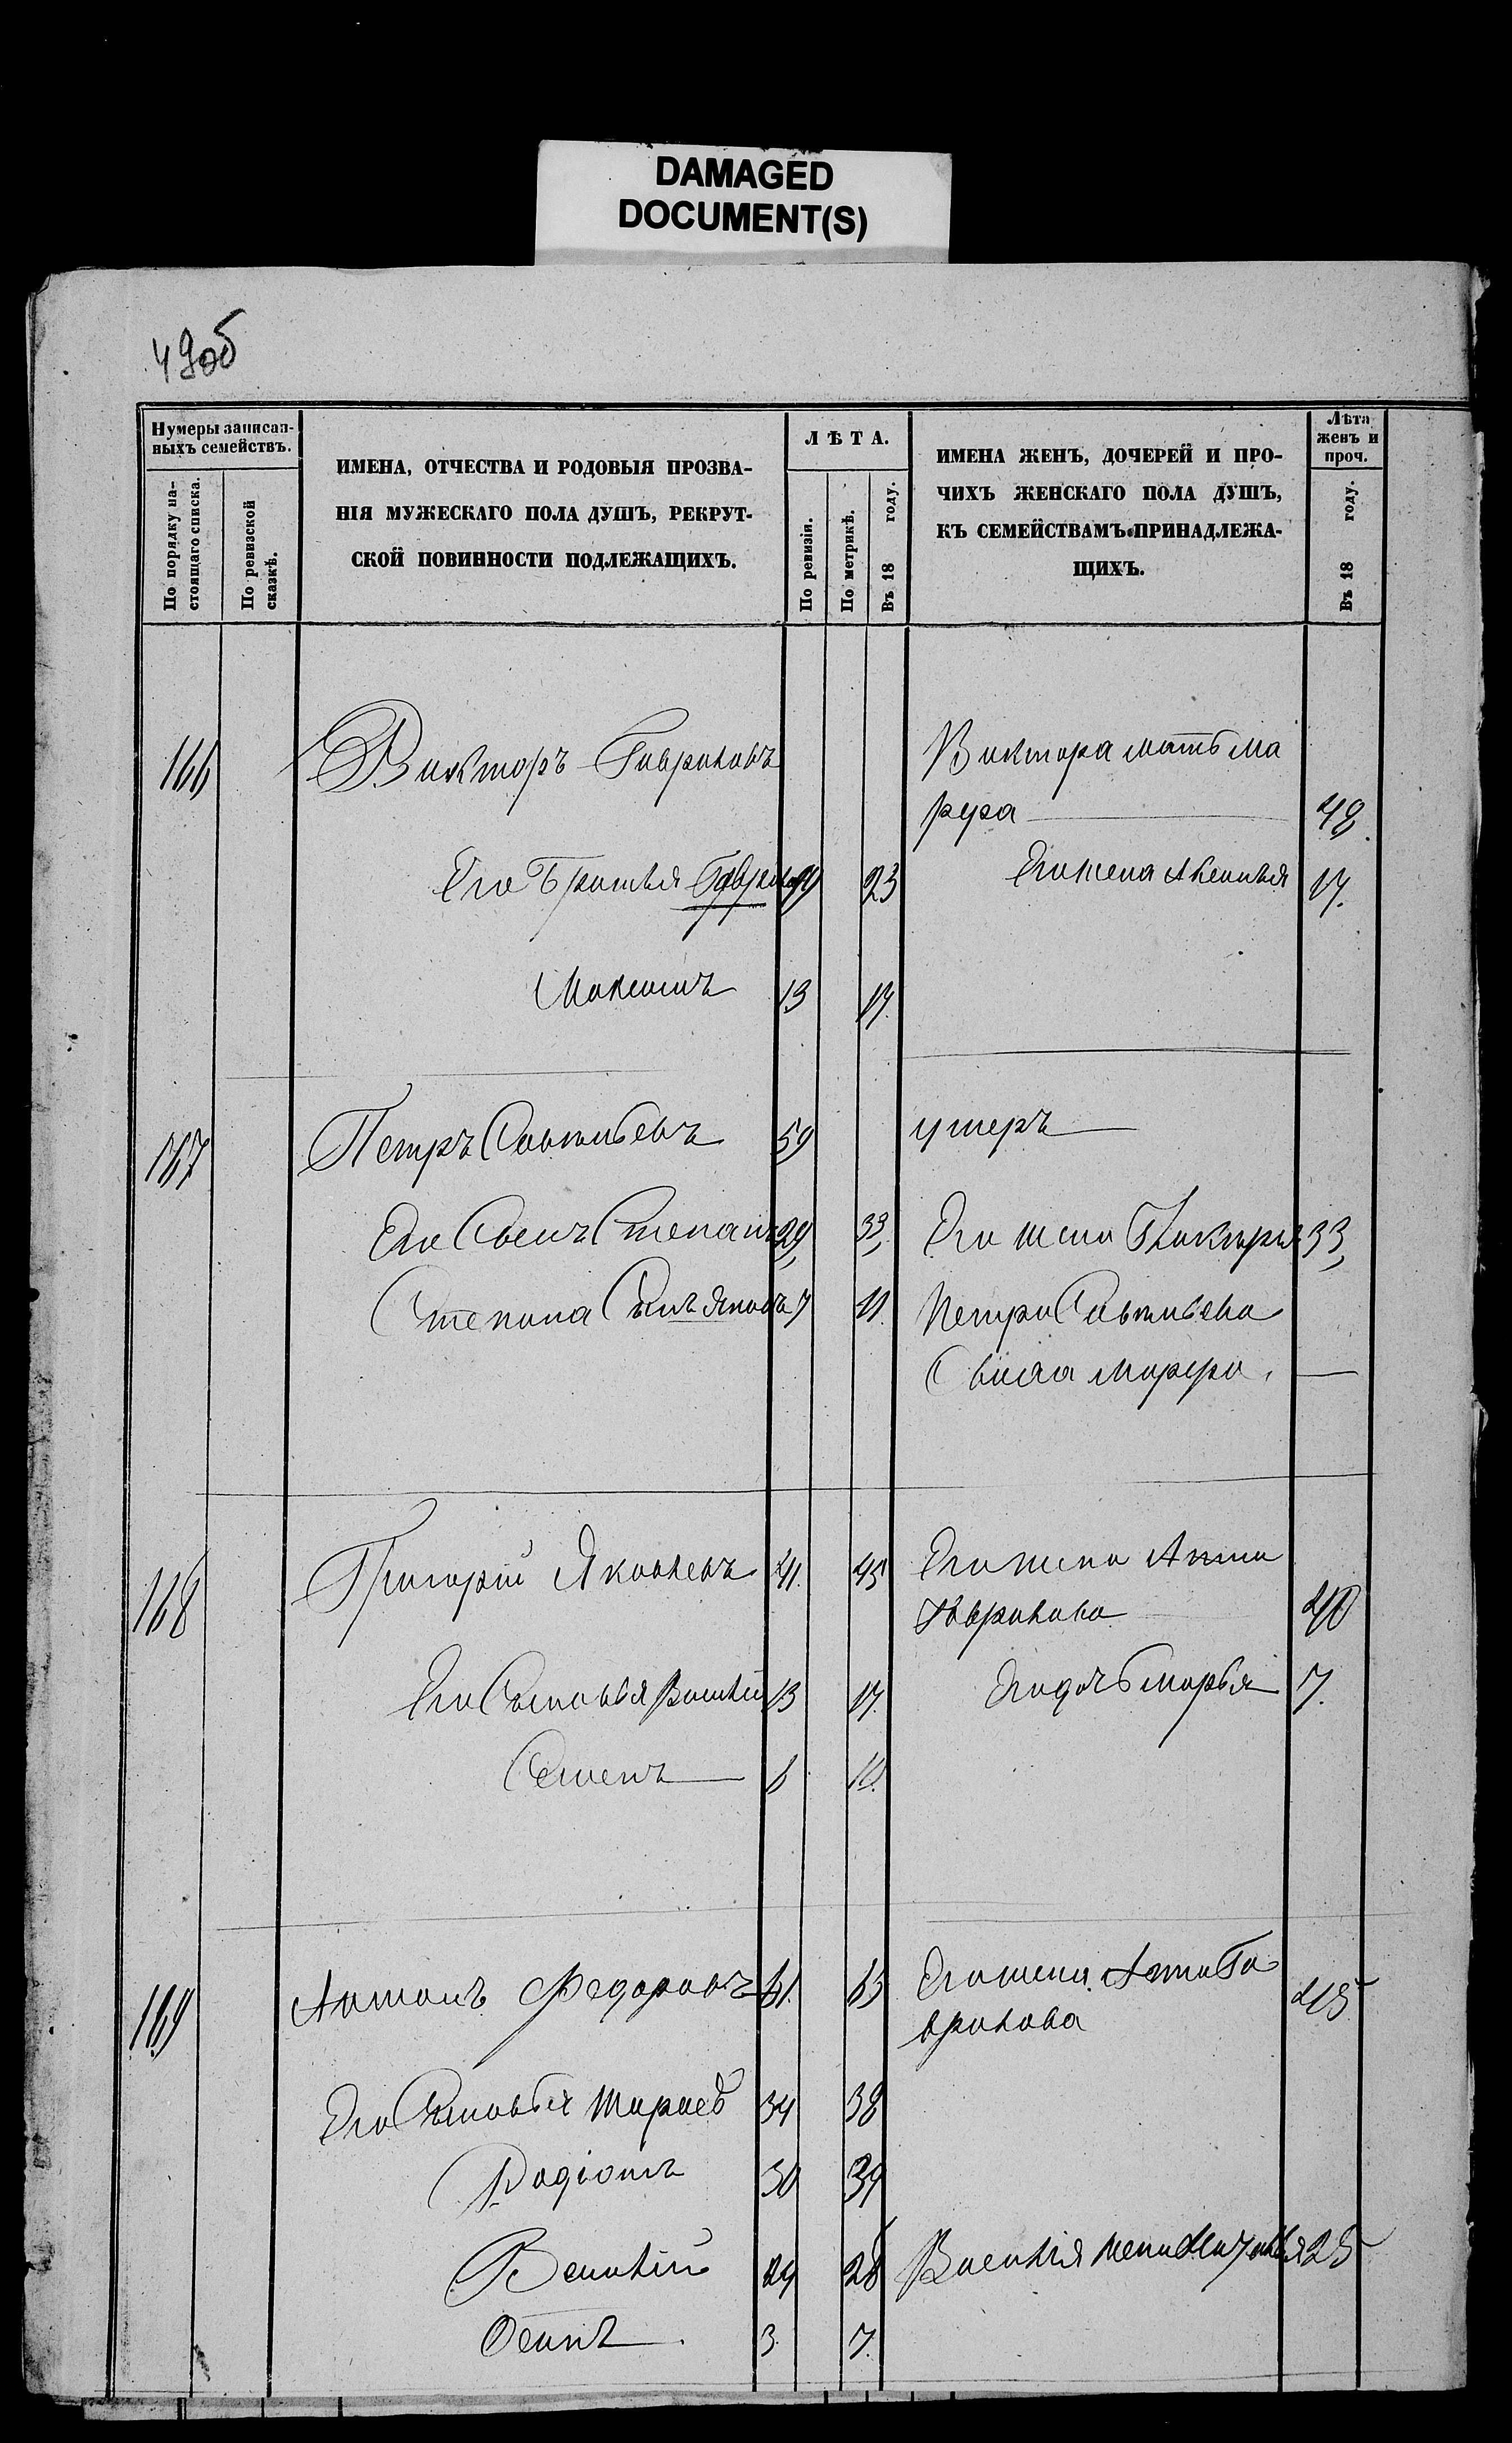 DAMAGED
DOCUMENT(S)
49об
Нумеры записан-
ныхъ семействъ.
По порядку на-
стоящаго списка.
По ревизской
сказкѣ.
ИМЕНА, ОТЧЕСТВА И РОДОВЫЯ ПРОЗВА-
НІЯ МУЖЕСКАГО ПОЛА ДУШЪ, РЕКРУТ-
СКОЙ ПОВИННОСТИ ПОДЛЕЖАЩИХЪ.
ЛѢТА.
По ревизіи.
По метрикѣ.
Въ 18 году.
ИМЕНА ЖЕНЪ, ДОЧЕРЕЙ И ПРО-
ЧИХЪ ЖЕНСКАГО ПОЛА ДУШЪ,
КЪ СЕМЕЙСТВАМЪ ПРИНАДЛЕЖА-
ЩИХЪ.
Лѣта
женъ и
проч.
Въ 18 году.
166 Викторъ Гавриловъ Виктора мать Ма
рфра 48
Его Братья Гаврило 19 23 Его жена Аксинья 17.
Максимъ 13 17.
167 Петръ Савельевъ 59 умеръ
Его Сынъ Степанъ 29, 33, Его жена 33,
Степана Сынъ Яковъ 7 11. Петра Савельева
Марфра.
168 Григорій Яковлевъ 41. 45 Его жена Анна
Гаврилова 40
Его Сыновья Василій 13 17. Его дочь Марья 7.
Семенъ 6 10.
169 Антонъ Федоровъ 61. 65 Его жена Анна Га
врилова 45
Его Сыновья Тарасъ 34 38
Родіонъ 30 34
Василій 24 28 Василія жена 25
Осипъ 3. 7.